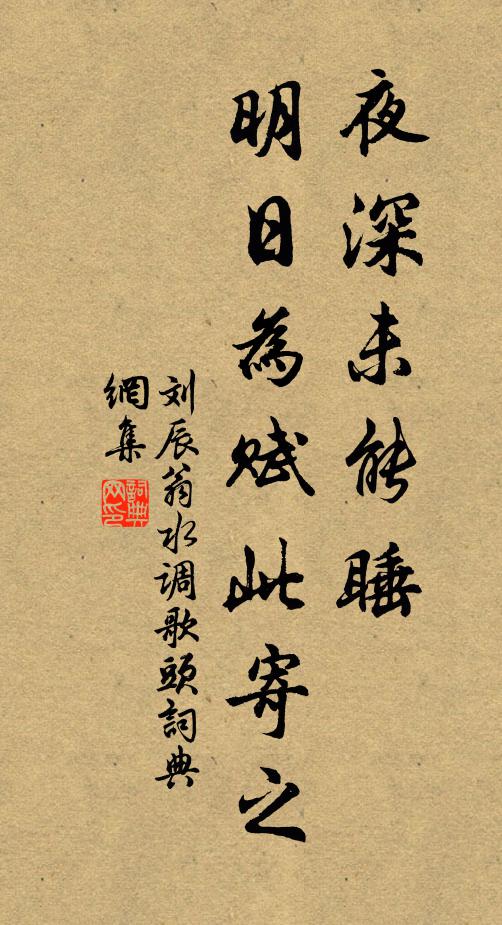 夜深未能睡
明日為賦此寄之
刘辰翁水调歌頭詞典
網集
詞典
网印